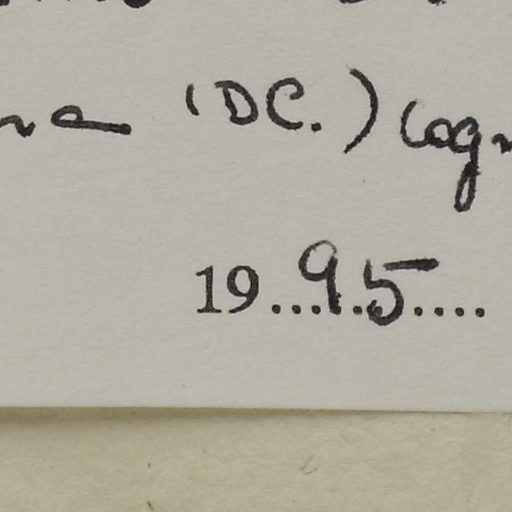 (DC.) Cogn
19...95.....